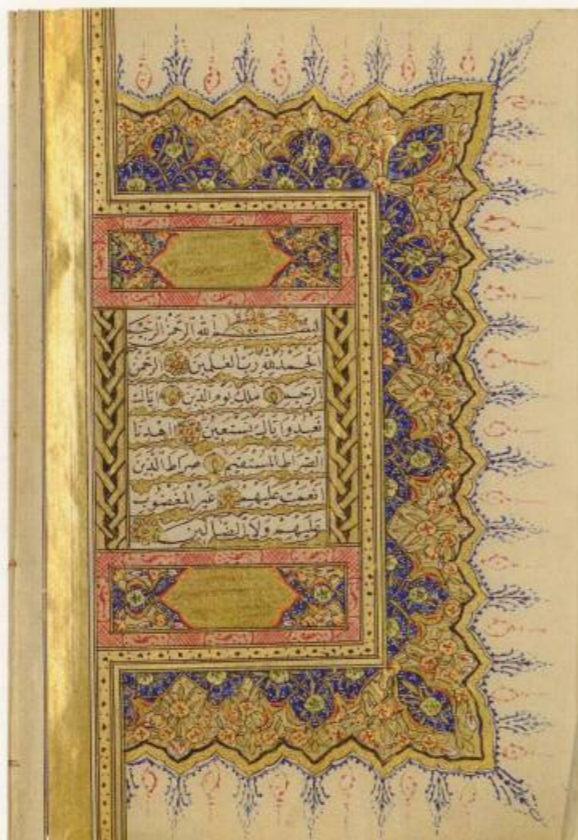 بسم الله الرحمن الرحيم
الحمد لله رب العلمين الرحمن
الرحيم ملك يوم الدين اياك
نعبد واياك نستعين اهدنا
الصراط المستقيم صراط الذين
انعمت عليهم غير المغضوب
عليهم ولا الضالين